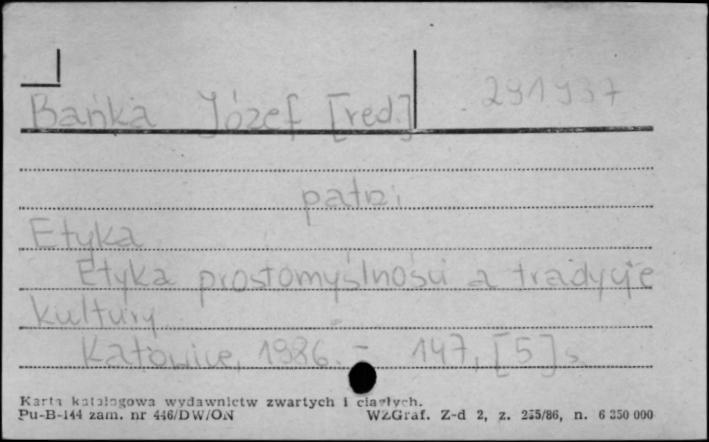 Bańka Józef [red.] 291937
patrz:
Etyka
Etyka prostomyślności a tradycje
kultury
Katowice, 1986. - 147, [5] s.
Karta katalogowa wydawnictw zwartych i ciągłych.
Pu-B-144 zam. nr 446/DW/ON WZGraf. Z-d 2, z. 255/86, n. 6 350 000